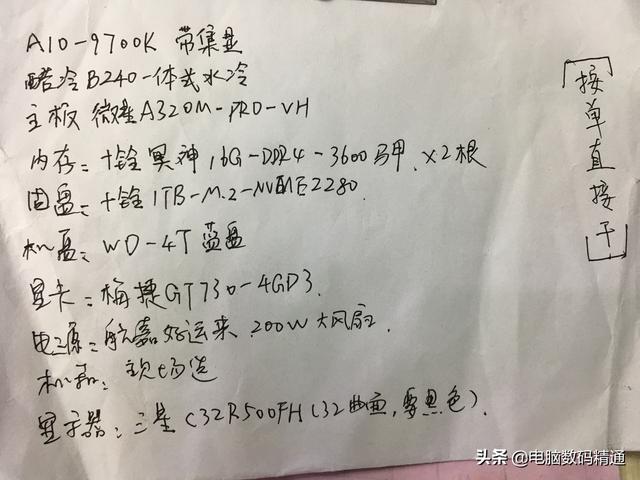 A10-9700K 带集显
酷冷B240一体式水冷
主板 微星A320M-PRO-VH
内存：十铨冥神16G-DDR4-3600马甲.×2根
固盘：十铨1TB-M.2-NVME2280.
机盘：WD-4T蓝盘
显卡：梅捷GT730-4GD3.
电源：航嘉好运来.200W大风扇.
机箱：现场选
显示器：三星C32R500FH(32曲面,要黑色).
接单直接干
头条 @电脑数码精通